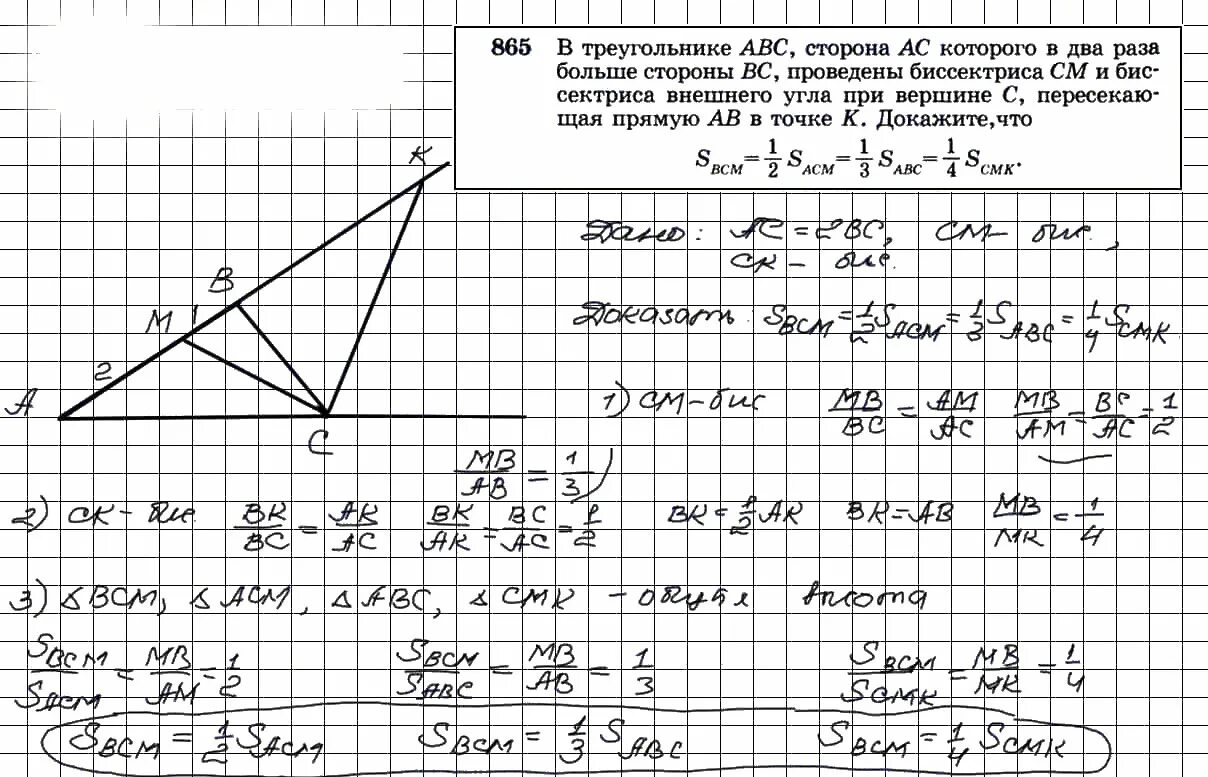 865 В треугольнике ABC, сторона AC которого в два раза
больше стороны BC, проведены биссектриса CM и бис-
сектриса внешнего угла при вершине C, пересекаю-
щая прямую AB в точке K. Докажите,что
S_BCM = 1/2 S_ACM = 1/3 S_ABC = 1/4 S_CMK.
K
B
M 1
2
A
C
Дано: AC = 2BC, CM – бис.,
CK – бис.
Доказать: S_BCM = 1/2 S_ACM = 1/3 S_ABC = 1/4 S_CMK
1) CM – бис MB/BC = AM/AC MB/AM = BC/AC = 1/2
MB/AB = 1/3
2) CK – бис. BK/BC = AK/AC BK/AK = BC/AC = 1/2 BK = 1/2 AK BK = AB MB/MK = 1/4
3) △BCM, △ACM, △ABC, △CMK – общая высота
S_BCM/S_ACM = MB/AM = 1/2 S_BCM/S_ABC = MB/AB = 1/3 S_BCM/S_CMK = MB/MK = 1/4
S_BCM = 1/2 S_ACM S_BCM = 1/3 S_ABC S_BCM = 1/4 S_CMK